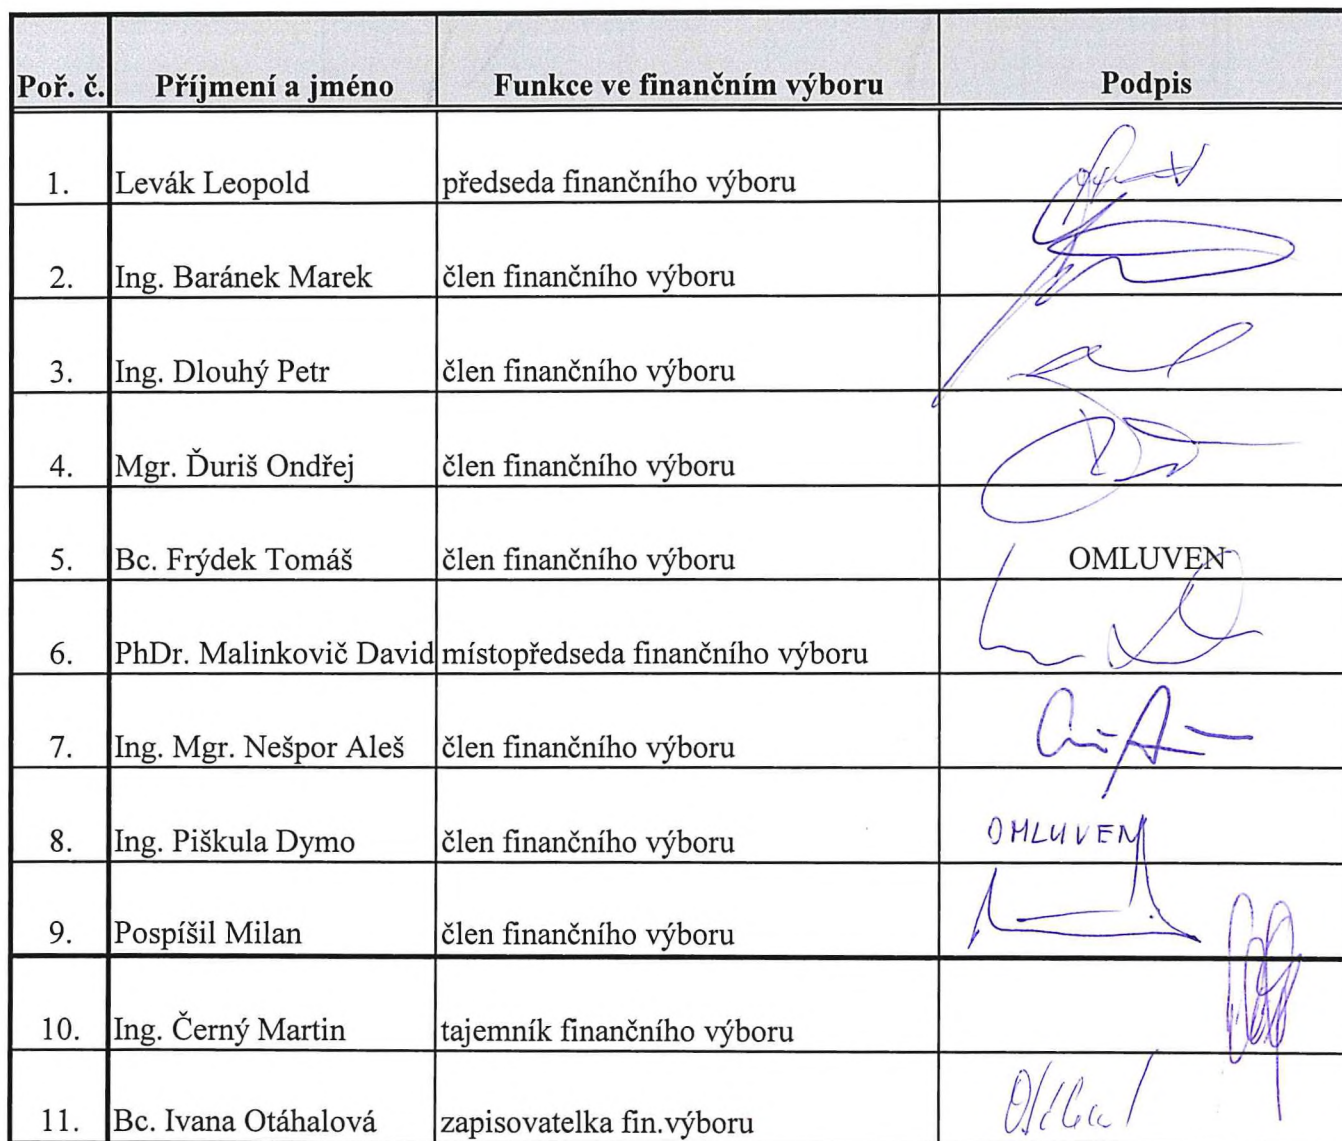 Poř. č. Příjmení a jméno Funkce ve finančním výboru Podpis
1. Levák Leopold předseda finančního výboru
2. Ing. Baránek Marek člen finančního výboru
3. Ing. Dlouhý Petr člen finančního výboru
4. Mgr. Ďuriš Ondřej člen finančního výboru
5. Bc. Frýdek Tomáš člen finančního výboru OMLUVEN
6. PhDr. Malinkovič David místopředseda finančního výboru
7. Ing. Mgr. Nešpor Aleš člen finančního výboru
8. Ing. Piškula Dymo člen finančního výboru OMLUVEN
9. Pospíšil Milan člen finančního výboru
10. Ing. Černý Martin tajemník finančního výboru
11. Bc. Ivana Otáhalová zapisovatelka fin.výboru